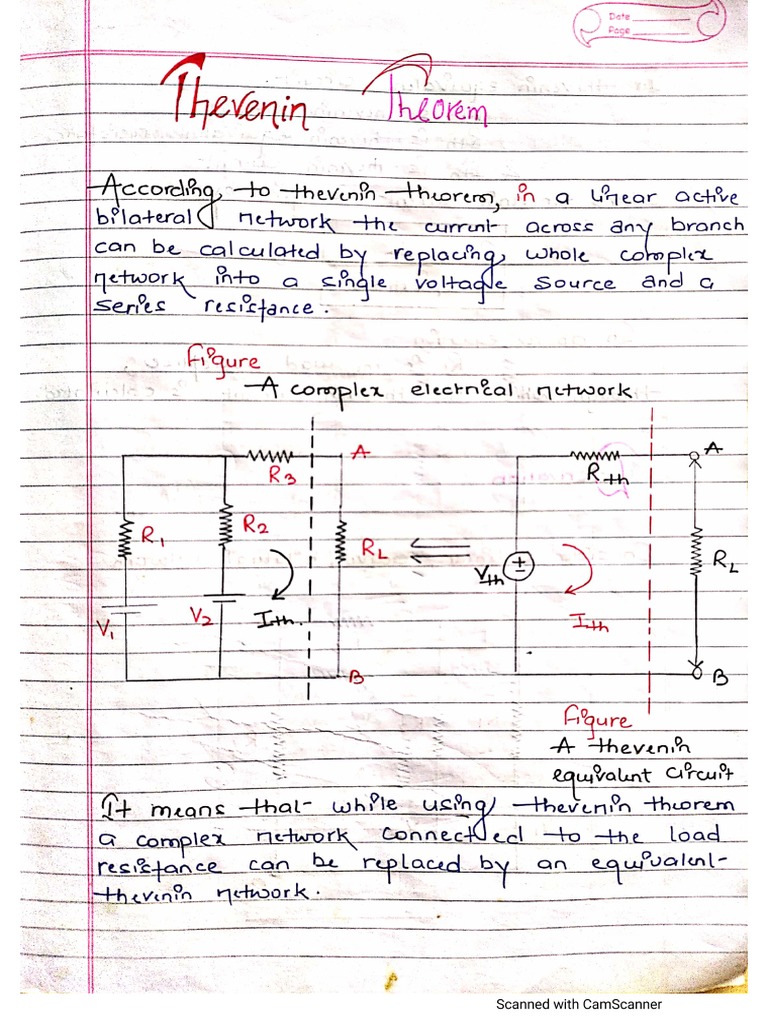 Date
Page
Thevenin Theorem
According to thevenin theorem, in a linear active
bilateral network the current across any branch
can be calculated by replacing whole complex
network into a single voltage source and a
series resistance.
Figure
A complex electrical network
R3
A
R1
R2
RL
V1
V2
Ith.
B
Rth
A
Vth
RL
Ith
B
Figure
A thevenin
equivalent circuit
It means that while using thevenin theorem
a complex network connected to the load
resistance can be replaced by an equivalent
thevenin network.
Scanned with CamScanner